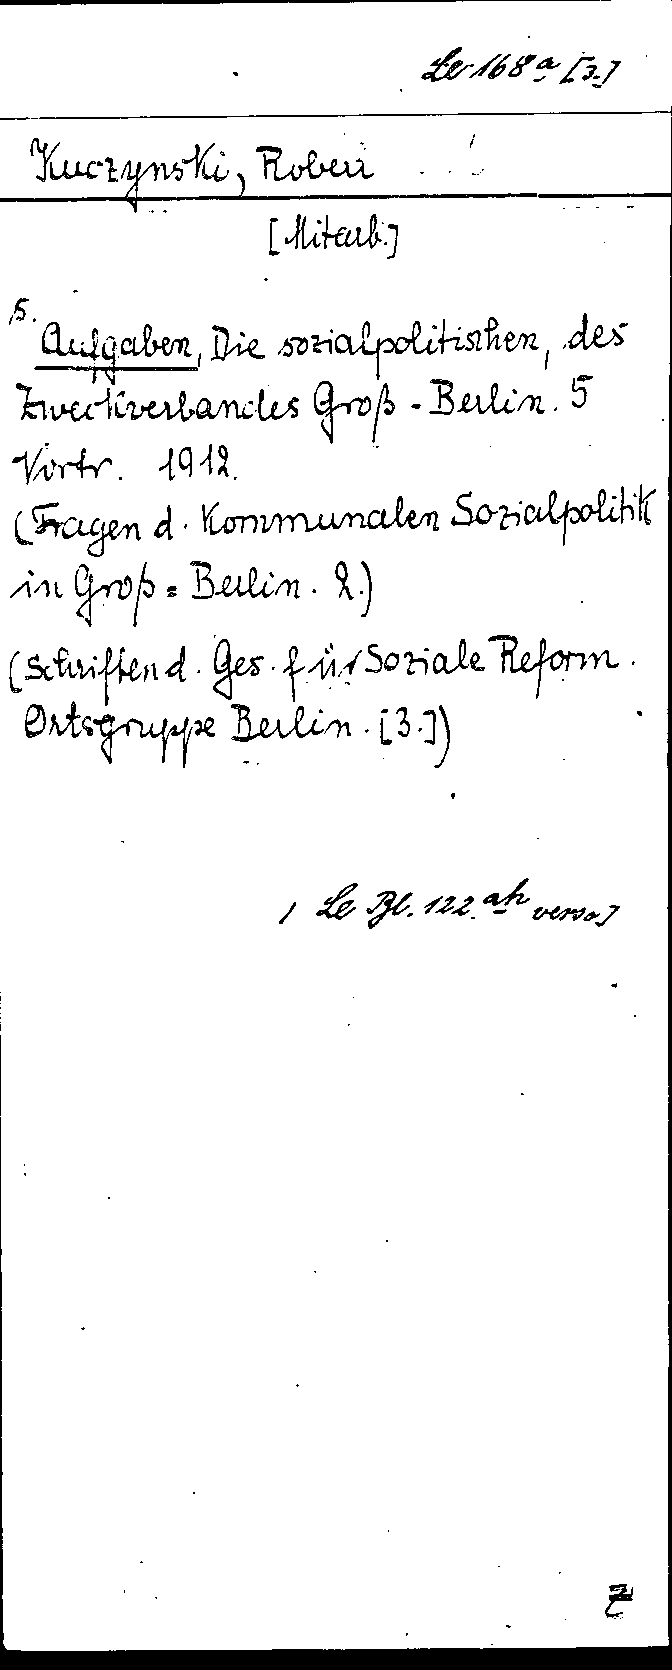 Le 168 a [3.]
Kuczynski, Robert
[Mitarb.]
s.
Aufgaben, Die sozialpolitischen, des
Zweckverbandes Groß-Berlin. 5
Vortr. 1912.
(Fragen d. Kommunalen Sozialpolitik
in Groß=Berlin. 2.)
(Schriften d. Ges. für Soziale Reform.
Ortsgruppe Berlin. [3.])
Le Bl. 122 ah verso]
Z